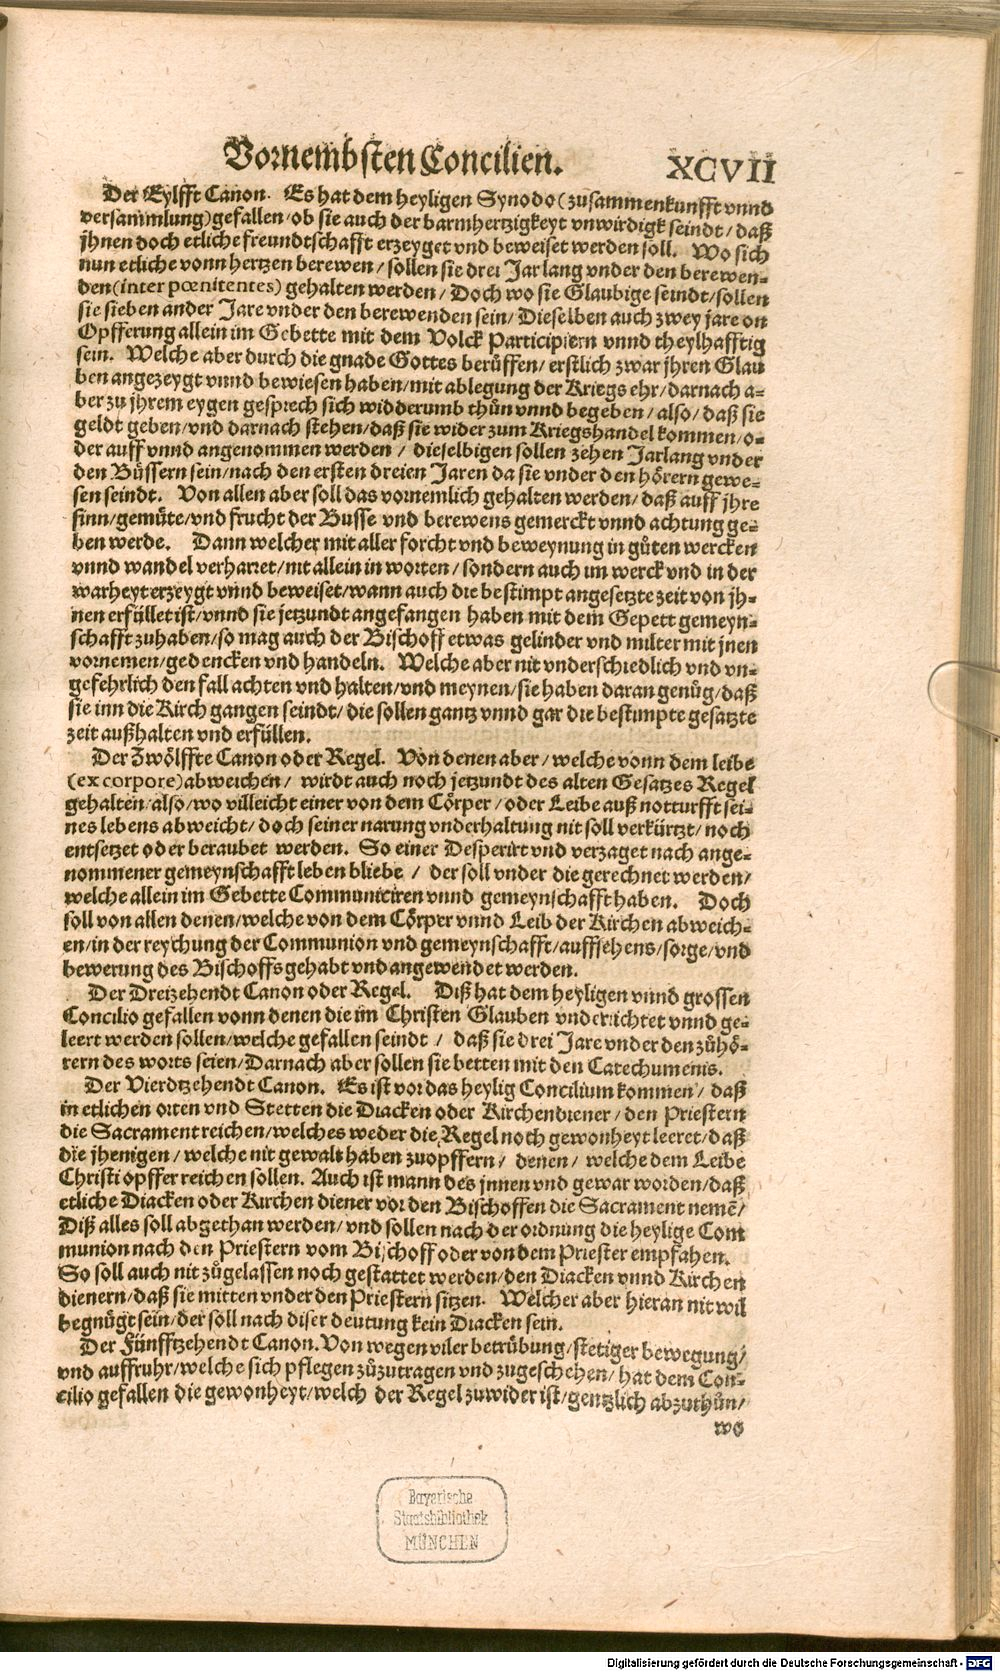 Vornembsten Concilien. XCVII
Der Eylfft Canon. Es hat dem heyligen Synodo (zusammenkunfft vnnd
versammlung) gefallen/ ob sie auch der barmhertzigkeyt vnwirdigk seindt/ daß
jhnen doch etliche freundtschafft erzeyget vnd beweiset werden soll. Wo sich
nun etliche vonn hertzen berewen/ sollen sie drei Jar lang vnder den berewen-
den (inter pœnitentes) gehalten werden/ Doch wo sie Glaubige seindt/ sollen
sie sieben ander Jare vnder den berewenden sein/ Dieselben auch zwey jare on
Opfferung allein im Gebette mit dem Volck Participiern vnnd theylhafftig
sein. Welche aber durch die gnade Gottes berůffen/ erstlich zwar jhren Glau
ben angezeygt vnnd bewiesen haben/ mit ablegung der Kriegs ehr/ darnach a-
ber zu jhrem eygen gesprech sich widderumb thůn vnnd begeben/ also/ daß sie
geldt geben/ vnd darnach stehen/ daß sie wider zum Kriegshandel kommen/ o-
der auff vnnd angenommen werden/ dieselbigen sollen zehen Jarlang vnder
den Bůssern sein/ nach den ersten dreien Jaren da sie vnder den hörern gewe-
sen seindt. Von allen aber soll das vornemlich gehalten werden/ daß auff jhre
sinn/ gemüte/ vnd frucht der Busse vnd berewens gemerckt vnnd achtung ge-
ben werde. Dann welcher mit aller forcht vnd beweynung in gůten wercken
vnnd wandel verharret/ nit allein in worten/ sondern auch im werck vnd in der
warheyt erzeygt vnnd beweiset/ wann auch die bestimpt angesetzte zeit von jh-
nen erfüllet ist/ vnnd sie jetzundt angefangen haben mit dem Gepett gemeyn-
schafft zuhaben/ so mag auch der Bischoff etwas gelinder vnd milter mit jnen
vornemen/ gedencken vnd handeln. Welche aber nit vnderschiedlich vnd vn-
gefehrlich den fall achten vnd halten/ vnd meynen/ sie haben daran genůg/ daß
sie inn die Kirch gangen seindt/ die sollen gantz vnnd gar die bestimpte gesatzte
zeit außhalten vnd erfüllen.
Der Zwölffte Canon oder Regel. Von denen aber/ welche vonn dem leibe
(ex corpore) abweichen/ wirdt auch noch jetzundt des alten Gesatzes Regel
gehalten/ also/ wo villeicht einer von dem Cörper/ oder Leibe auß notturfft sei-
nes lebens abweicht/ doch seiner narung vnderhaltung nit soll verkürtzt/ noch
entsetzet oder beraubet werden. So einer Desperirt vnd verzaget nach ange-
nommener gemeynschafft leben bliebe/ der soll vnder die gerechnet werden/
welche allein im Gebette Communiciren vnnd gemeynschafft haben. Doch
soll von allen denen/ welche von dem Cörper vnnd Leib der Kirchen abweich-
en/ in der reychung der Communion vnd gemeynschafft/ auffsehens/ sorge/ vnd
bewerung des Bischoffs gehabt vnd angewendet werden.
Der Dreizehendt Canon oder Regel. Diß hat dem heyligen vnnd grossen
Concilio gefallen vonn denen die im Christen Glauben vnderrichtet vnnd ge-
leert werden sollen/ welche gefallen seindt/ daß sie drei Jare vnder den zůhö-
rern des worts seien/ Darnach aber sollen sie betten mit den Catechumenis.
Der Vierdtzehendt Canon. Es ist vor das heylig Concilium kommen/ daß
in etlichen orten vnd Stetten die Diacken oder Kirchendiener/ den Priestern
die Sacrament reichen/ welches weder die Regel noch gewonheyt leeret/ daß
die jhenigen/ welche nit gewalt haben zuopffern/ denen/ welche dem Leibe
Christi opffer reichen sollen. Auch ist mann des jnnen vnd gewar worden/ daß
etliche Diacken oder Kirchen diener vor den Bischoffen die Sacrament nemē/
Diß alles soll abgethan werden/ vnd sollen nach der ordnung die heylige Com
munion nach den Priestern vom Bischoff oder von dem Priester empfahen.
So soll auch nit zůgelassen noch gestattet werden/ den Diacken vnnd Kirchen
dienern/ daß sie mitten vnder den Priestern sitzen. Welcher aber hieran nit wil
begnügt sein/ der soll nach diser deutung kein Diacken sein.
Der Fünfftzehendt Canon. Von wegen viler betrübung/ stetiger bewegung/
vnd auffruhr/ welche sich pflegen zůzutragen vnd zugeschehen/ hat dem Con-
cilio gefallen die gewonheyt/ welch der Regel zuwider ist/ gentzlich abzuthůn/
wo
Bayerische
Staatsbibliothek
MÜNCHEN
Digitalisierung gefördert durch die Deutsche Forschungsgemeinschaft - DFG